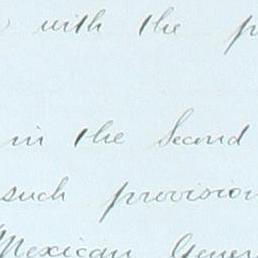 with the
in the Second
such provision
Mexican Gener